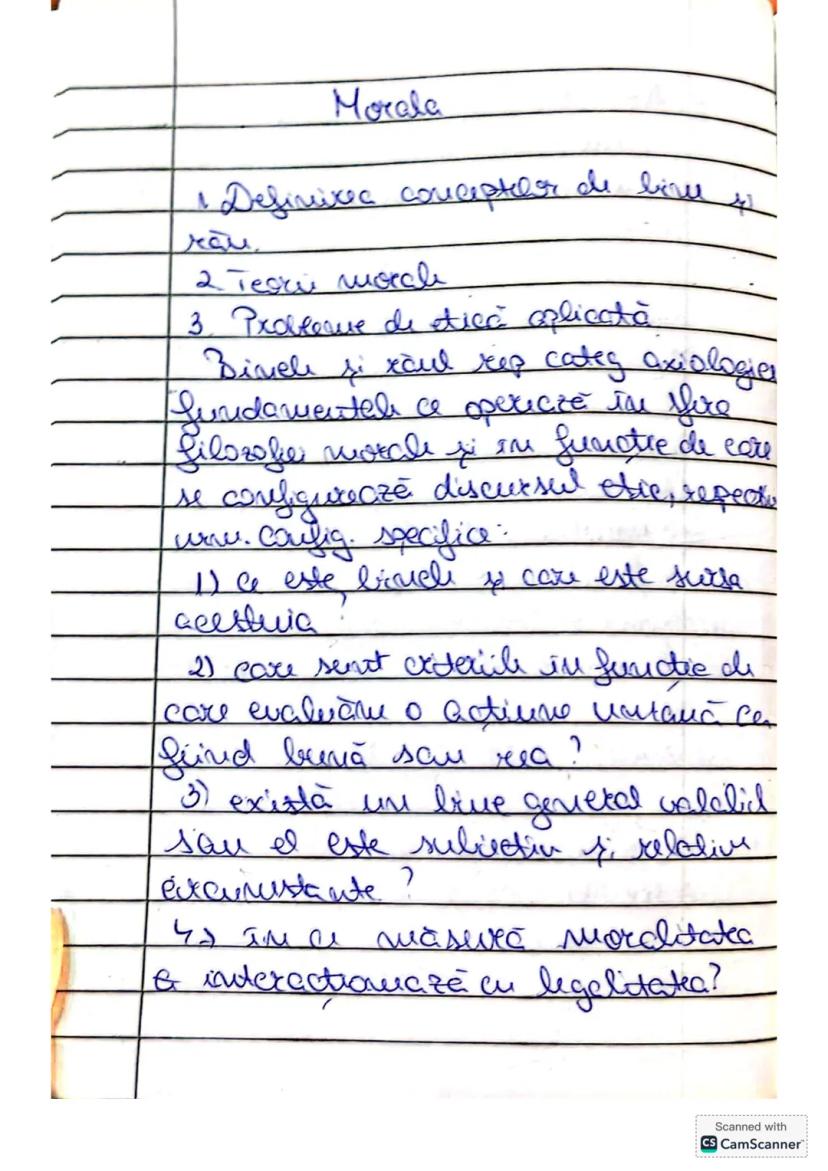 Morala
1. Definirea conceptelor de bine și
rău.
2. Teorii morale
3. Probleme de etică aplicată
Binele și răul rep categ axiologice
fundamentele ce operează în sfera
filozofiei morale și în funcție de care
se configurează discursul etic, respectiv
urm. config. specifice:
1) Ce este binele și care este sursa
acestuia?
2) care sunt criteriile în funcție de
care evaluăm o acțiune umană ca
fiind bună sau rea?
3) există un bine general valabil
sau el este subiectiv și relativ
circumstante?
4) În ce măsură moralitatea
interacționează cu legalitatea?
Scanned with
CS CamScanner